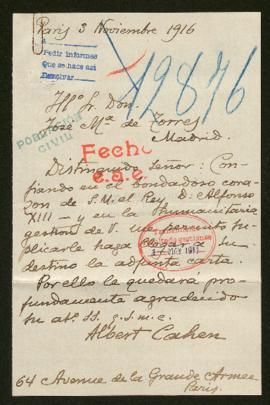 Paris 3 Noviembre 1916
A
Pedir informes
Que se hace así
Devolver
12876
Illº Sr. Don
José Mª de Torres
Madrid.
POBLACION
CIVIL
Fecho
Distinguido Señor: Con-
fiando en el bondadoso cora-
zon de S. M. el Rey, D. Alfonso
XIII – y en la humanitaria
gestion de V. me permito su-
plicarle haga llegar a su
destino la adjunta carta.
Por ello le quedará pro-
fundamente agradecido
su atº. SS. q. s. m. e.
Albert Cahen
64 Avenue de la Grande Armée
Paris.